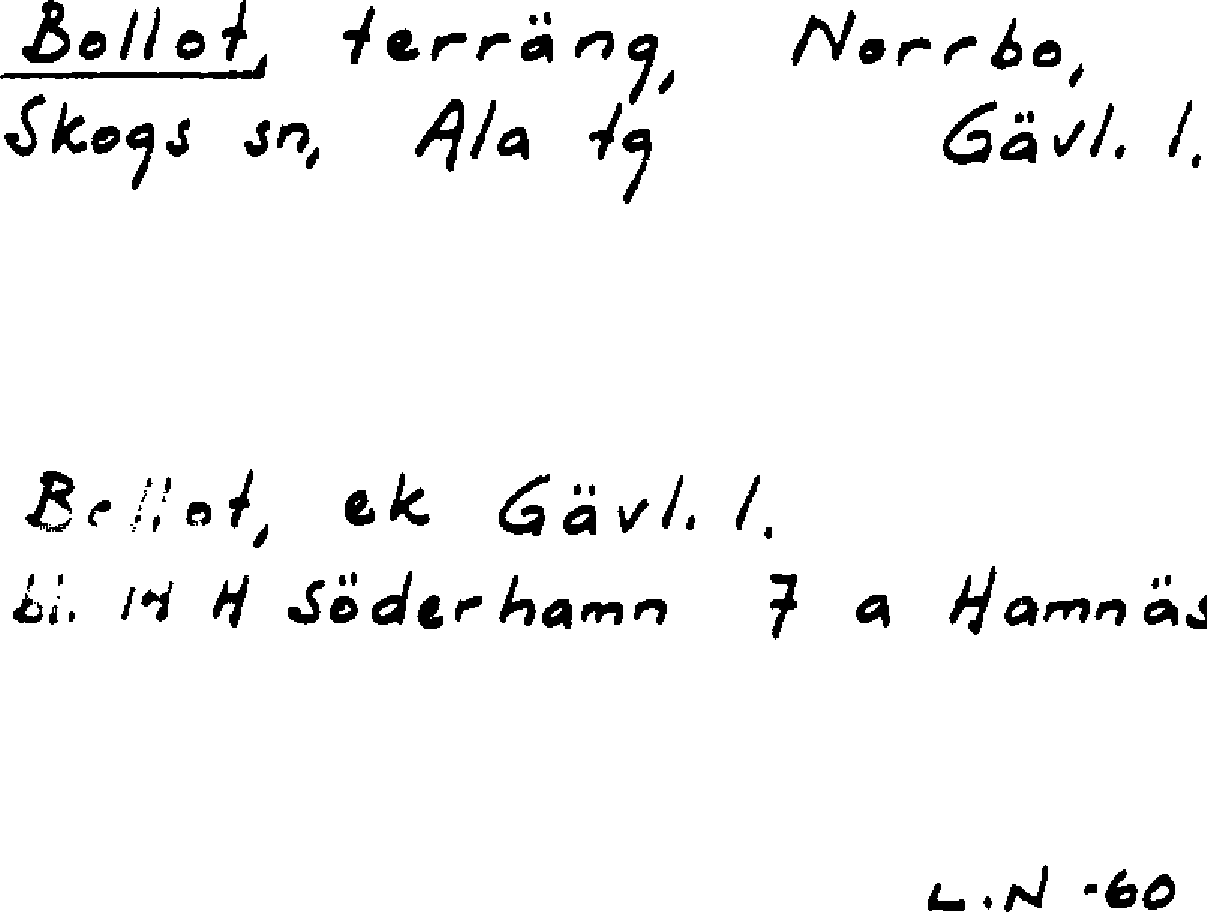 Bollot, terräng, Norrbo,
Skogs sn, Ala tg Gävl. l.
Bollot, ek Gävl. l.
bl. 14 H Söderhamn 7 a Hamnäs
L.N -60